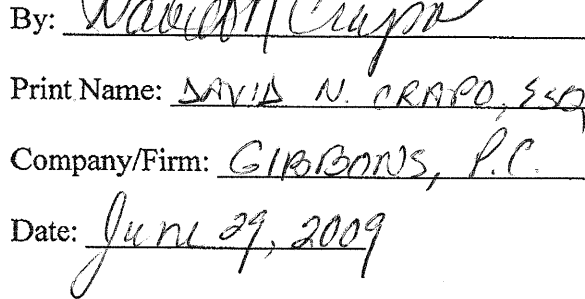 By: David N. Crapo
Print Name: DAVID N. CRAPO, ESQ
Company/Firm: GIBBONS, P.C.
Date: June 29, 2009